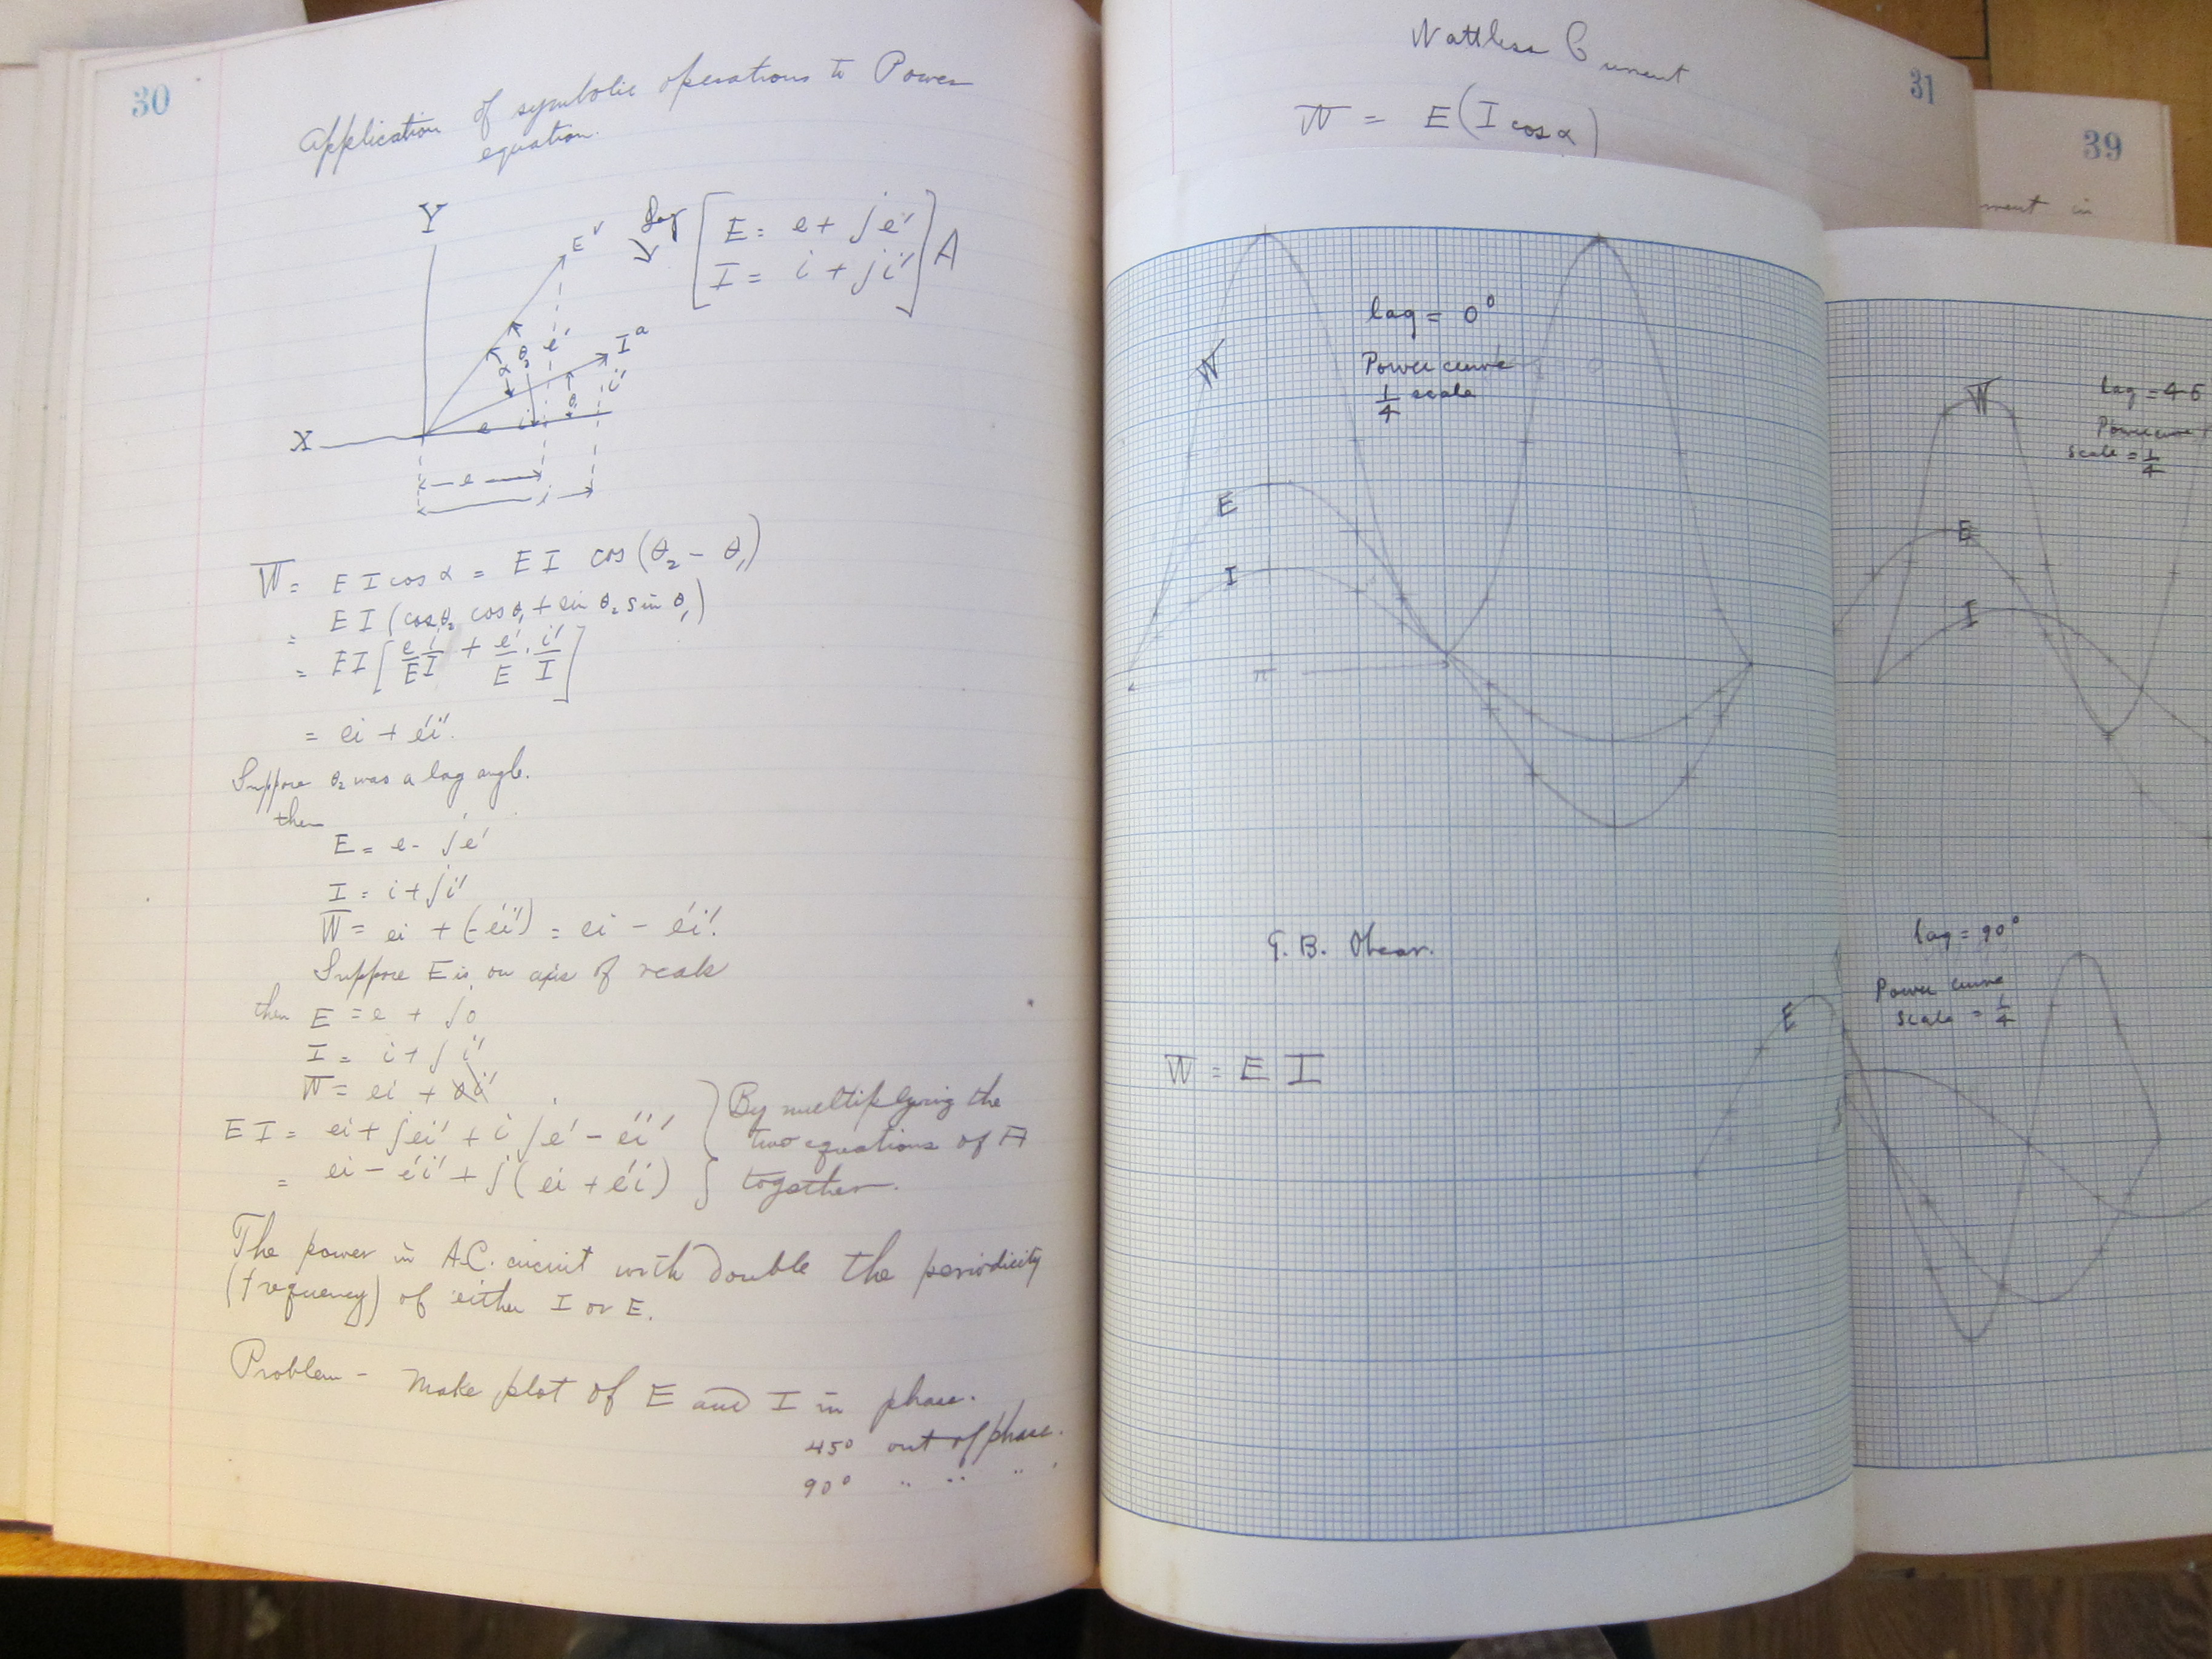 30
Application of symbolic operations to Power
equation.
Y
E v
[E = e + je'
I = i + ji'] A
α θ₂ e' I a
i'
θ₁
X e i
e
i
W = E I cos α = E I cos (θ₂ - θ₁)
= E I (cos θ₂ cos θ₁ + sin θ₂ sin θ₁)
= EI [e/E i/I + e'/E . i'/I]
= ei + e'i'.
Suppose θ₂ was a lag angle.
then
E = e - je'
I = i + ji'
W = ei + (-e'i') = ei - e'i'.
Suppose E is on axis of reals
then E = e + j0
I = i + ji'
W = ei + 0i'
EI = ei + jei' + i je' - e'i' } By multiplying the
two equations of A
= ei - e'i' + j(ei + e'i) together.
The power in A.C. circuit with double the periodicity
(frequency) of either I or E.
Problem - Make plot of E and I in phase.
45° out of phase.
90° " " "
31
Wattless Current
W = E(I cos α)
lag = 0°
Power curve
1/4 scale
W
E
I
π
G. B.
W = E I
E
39
ment in
lag = 45
Power curve
scale = 1/4
W
E
I
lag = 90°
Power curve
scale = 1/4